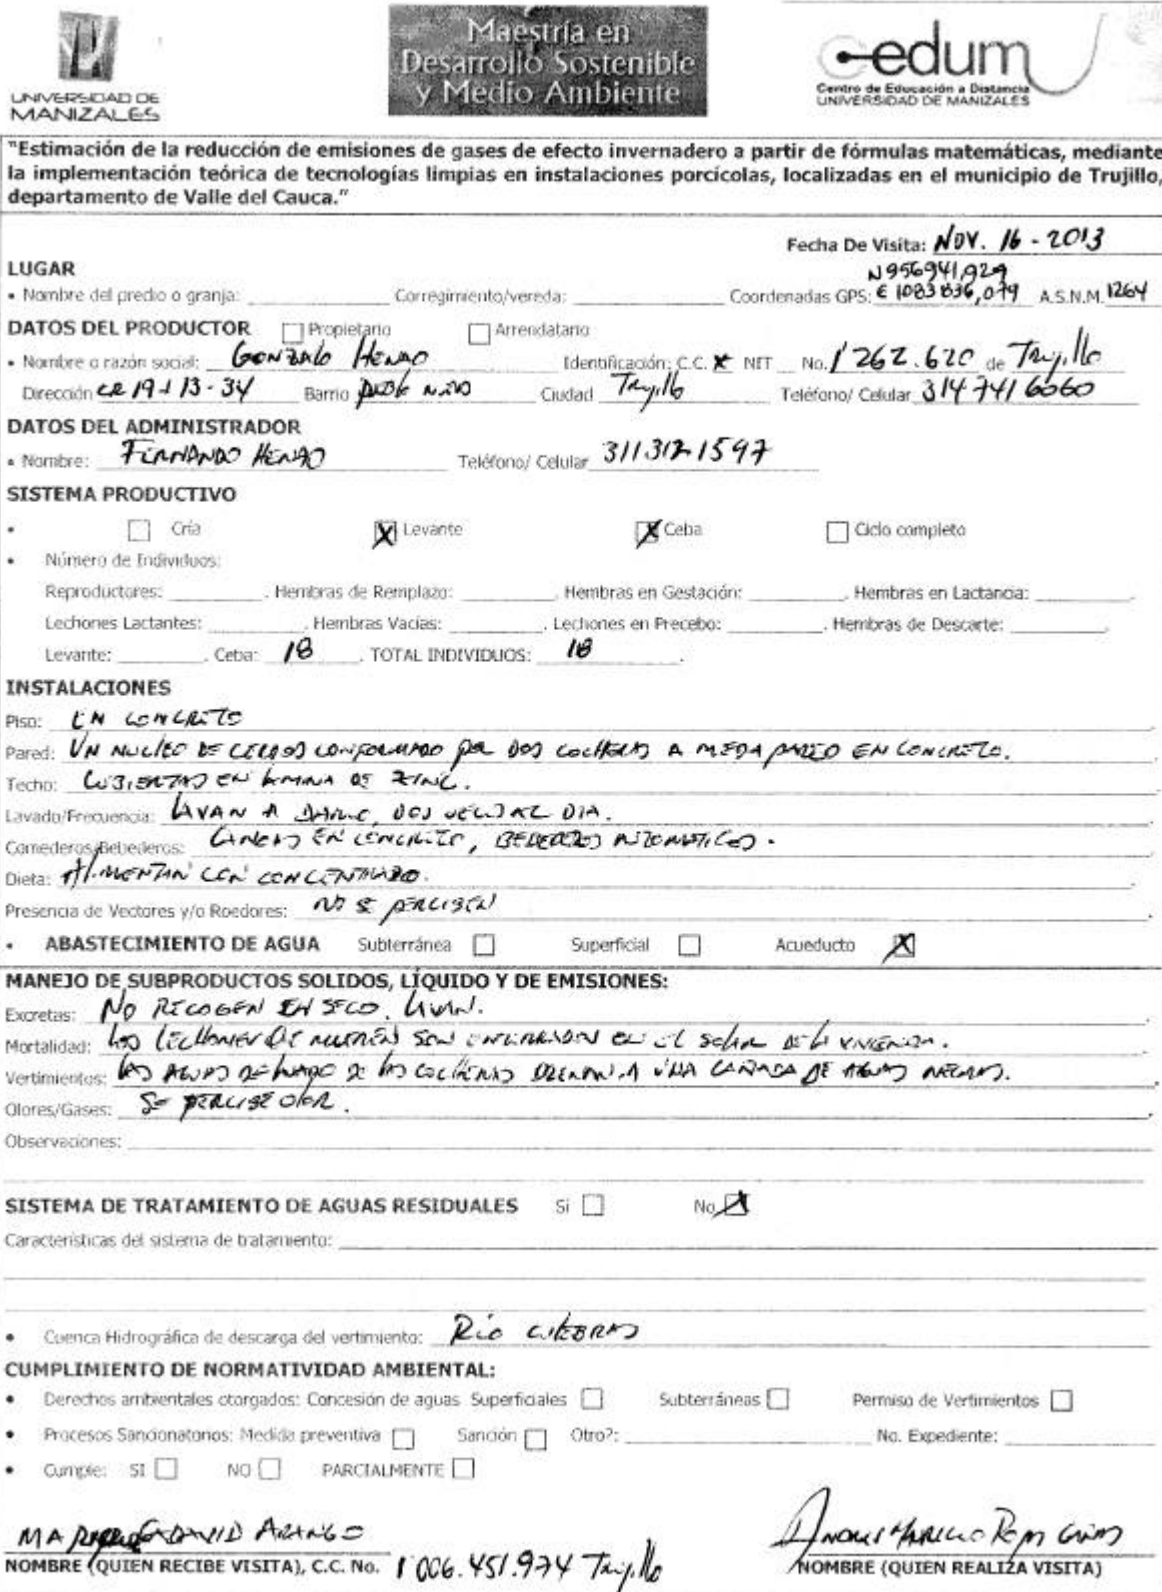 UNIVERSIDAD DE
MANIZALES
Maestría en
Desarrollo Sostenible
y Medio Ambiente
edum
Centro de Educación a Distancia
UNIVERSIDAD DE MANIZALES
"Estimación de la reducción de emisiones de gases de efecto invernadero a partir de fórmulas matemáticas, mediante
la implementación teórica de tecnologías limpias en instalaciones porcícolas, localizadas en el municipio de Trujillo,
departamento de Valle del Cauca."
Fecha De Visita: NOV. 16 - 2013
LUGAR
• Nombre del predio o granja: Corregimiento/vereda: Coordenadas GPS: N956941,929 E 1083836,079 A.S.N.M. 1264
DATOS DEL PRODUCTOR Propietario Arrendatario
• Nombre o razón social: GONZALO HENAO Identificación: C.C. X NIT No. 1'262.620 de Trujillo
Dirección CR 19 # 13-34 Barrio Ciudad Trujillo Teléfono/ Celular 314 741 6060
DATOS DEL ADMINISTRADOR
• Nombre: FERNANDO HENAO Teléfono/ Celular 311312-1597
SISTEMA PRODUCTIVO
• Cría X Levante X Ceba Ciclo completo
• Número de Individuos:
Reproductores: . Hembras de Remplazo: . Hembras en Gestación: . Hembras en Lactancia:
Lechones Lactantes: . Hembras Vacías: . Lechones en Precebo: . Hembras de Descarte: .
Levante: . Ceba: 18 . TOTAL INDIVIDUOS: 18 .
INSTALACIONES
Piso: EN CONCRETO
Pared: UN NUCLEO DE CERDOS CONFORMADO POR DOS COCHERAS A MEDIA PARED EN CONCRETO.
Techo: CUBIERTAS EN LAMINA DE ZINC.
Lavado/Frecuencia: LAVAN A DIARIO, DOS VECES AL DIA.
Comederos/Bebederos: CANOAS EN CONCRETO, BEBEDEROS AUTOMATICOS.
Dieta: ALIMENTAN CON CONCENTRADO.
Presencia de Vectores y/o Roedores: NO SE PERCIBEN
• ABASTECIMIENTO DE AGUA Subterránea Superficial Acueducto X
MANEJO DE SUBPRODUCTOS SOLIDOS, LÍQUIDO Y DE EMISIONES:
Excretas: NO RECOGEN EN SECO, LAVAN.
Mortalidad: LOS LECHONES QUE MUEREN SON ENTERRADOS EN EL SOLAR DE LA VIVIENDA.
Vertimientos: LAS AGUAS DE LAVADO DE LAS COCHERAS DRENAN A UNA CAÑADA DE AGUAS NEGRAS.
Olores/Gases: SE PERCIBE OLOR.
Observaciones:
SISTEMA DE TRATAMIENTO DE AGUAS RESIDUALES Si No X
Características del sistema de tratamiento:
• Cuenca Hidrográfica de descarga del vertimiento: RIO CULEBRAS
CUMPLIMIENTO DE NORMATIVIDAD AMBIENTAL:
• Derechos ambientales otorgados: Concesión de aguas Superficiales Subterráneas Permiso de Vertimientos
• Procesos Sancionatorios: Medida preventiva Sanción Otro?: No. Expediente:
• Cumple: SI NO PARCIALMENTE
DAVID ARANGO
NOMBRE (QUIEN RECIBE VISITA), C.C. No. 1'006.451.974 Trujillo
NOMBRE (QUIEN REALIZA VISITA)